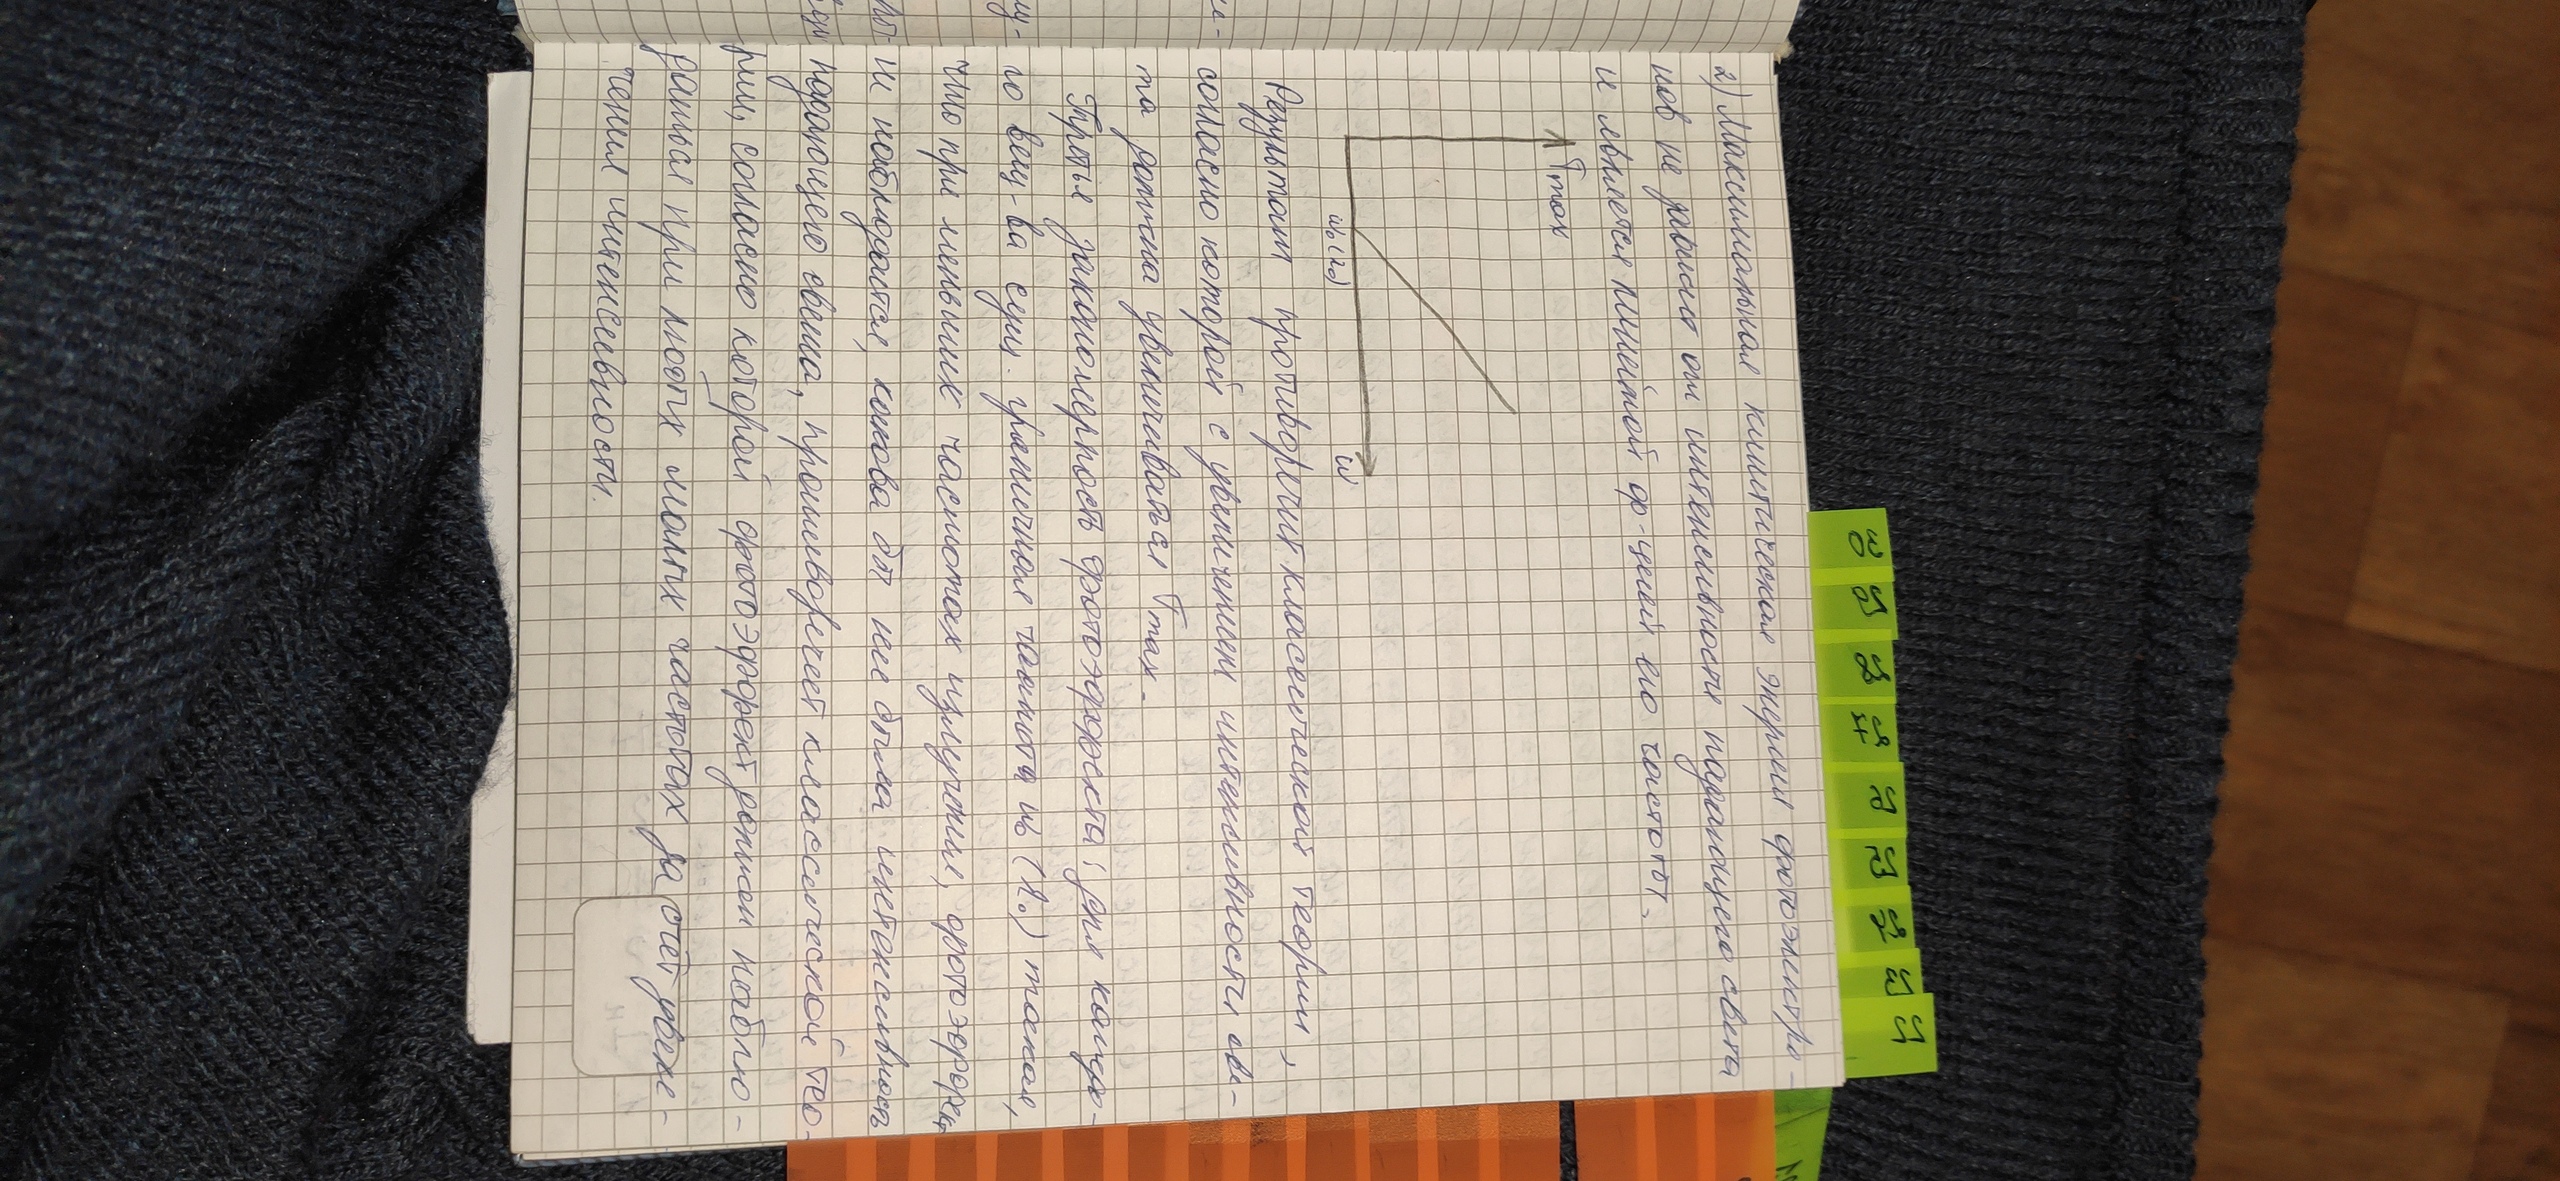 2) Максимальная кинетическая энергия фотоэлектро-
нов не зависит от интенсивности падающего света
и является линейной ф-цией его частоты.
Tmax
ω₀(λ₀)
ω
Результат противоречит классической теории,
согласно которой с увеличением интенсивности све-
та должна увеличиваться Tmax.
Третья закономерность фотоэффекта: для каждо-
го вещ-ва сущ. граничная частота ω₀ (λ₀) такая,
что при меньших частотах излучения, фотоэффект
не наблюдается, какова бы ни была интенсивность
падающего света, противоречит классической тео-
рии, согласно которой фотоэффект должен наблю-
даться при любых малых частотах за счёт увели-
чения интенсивности.